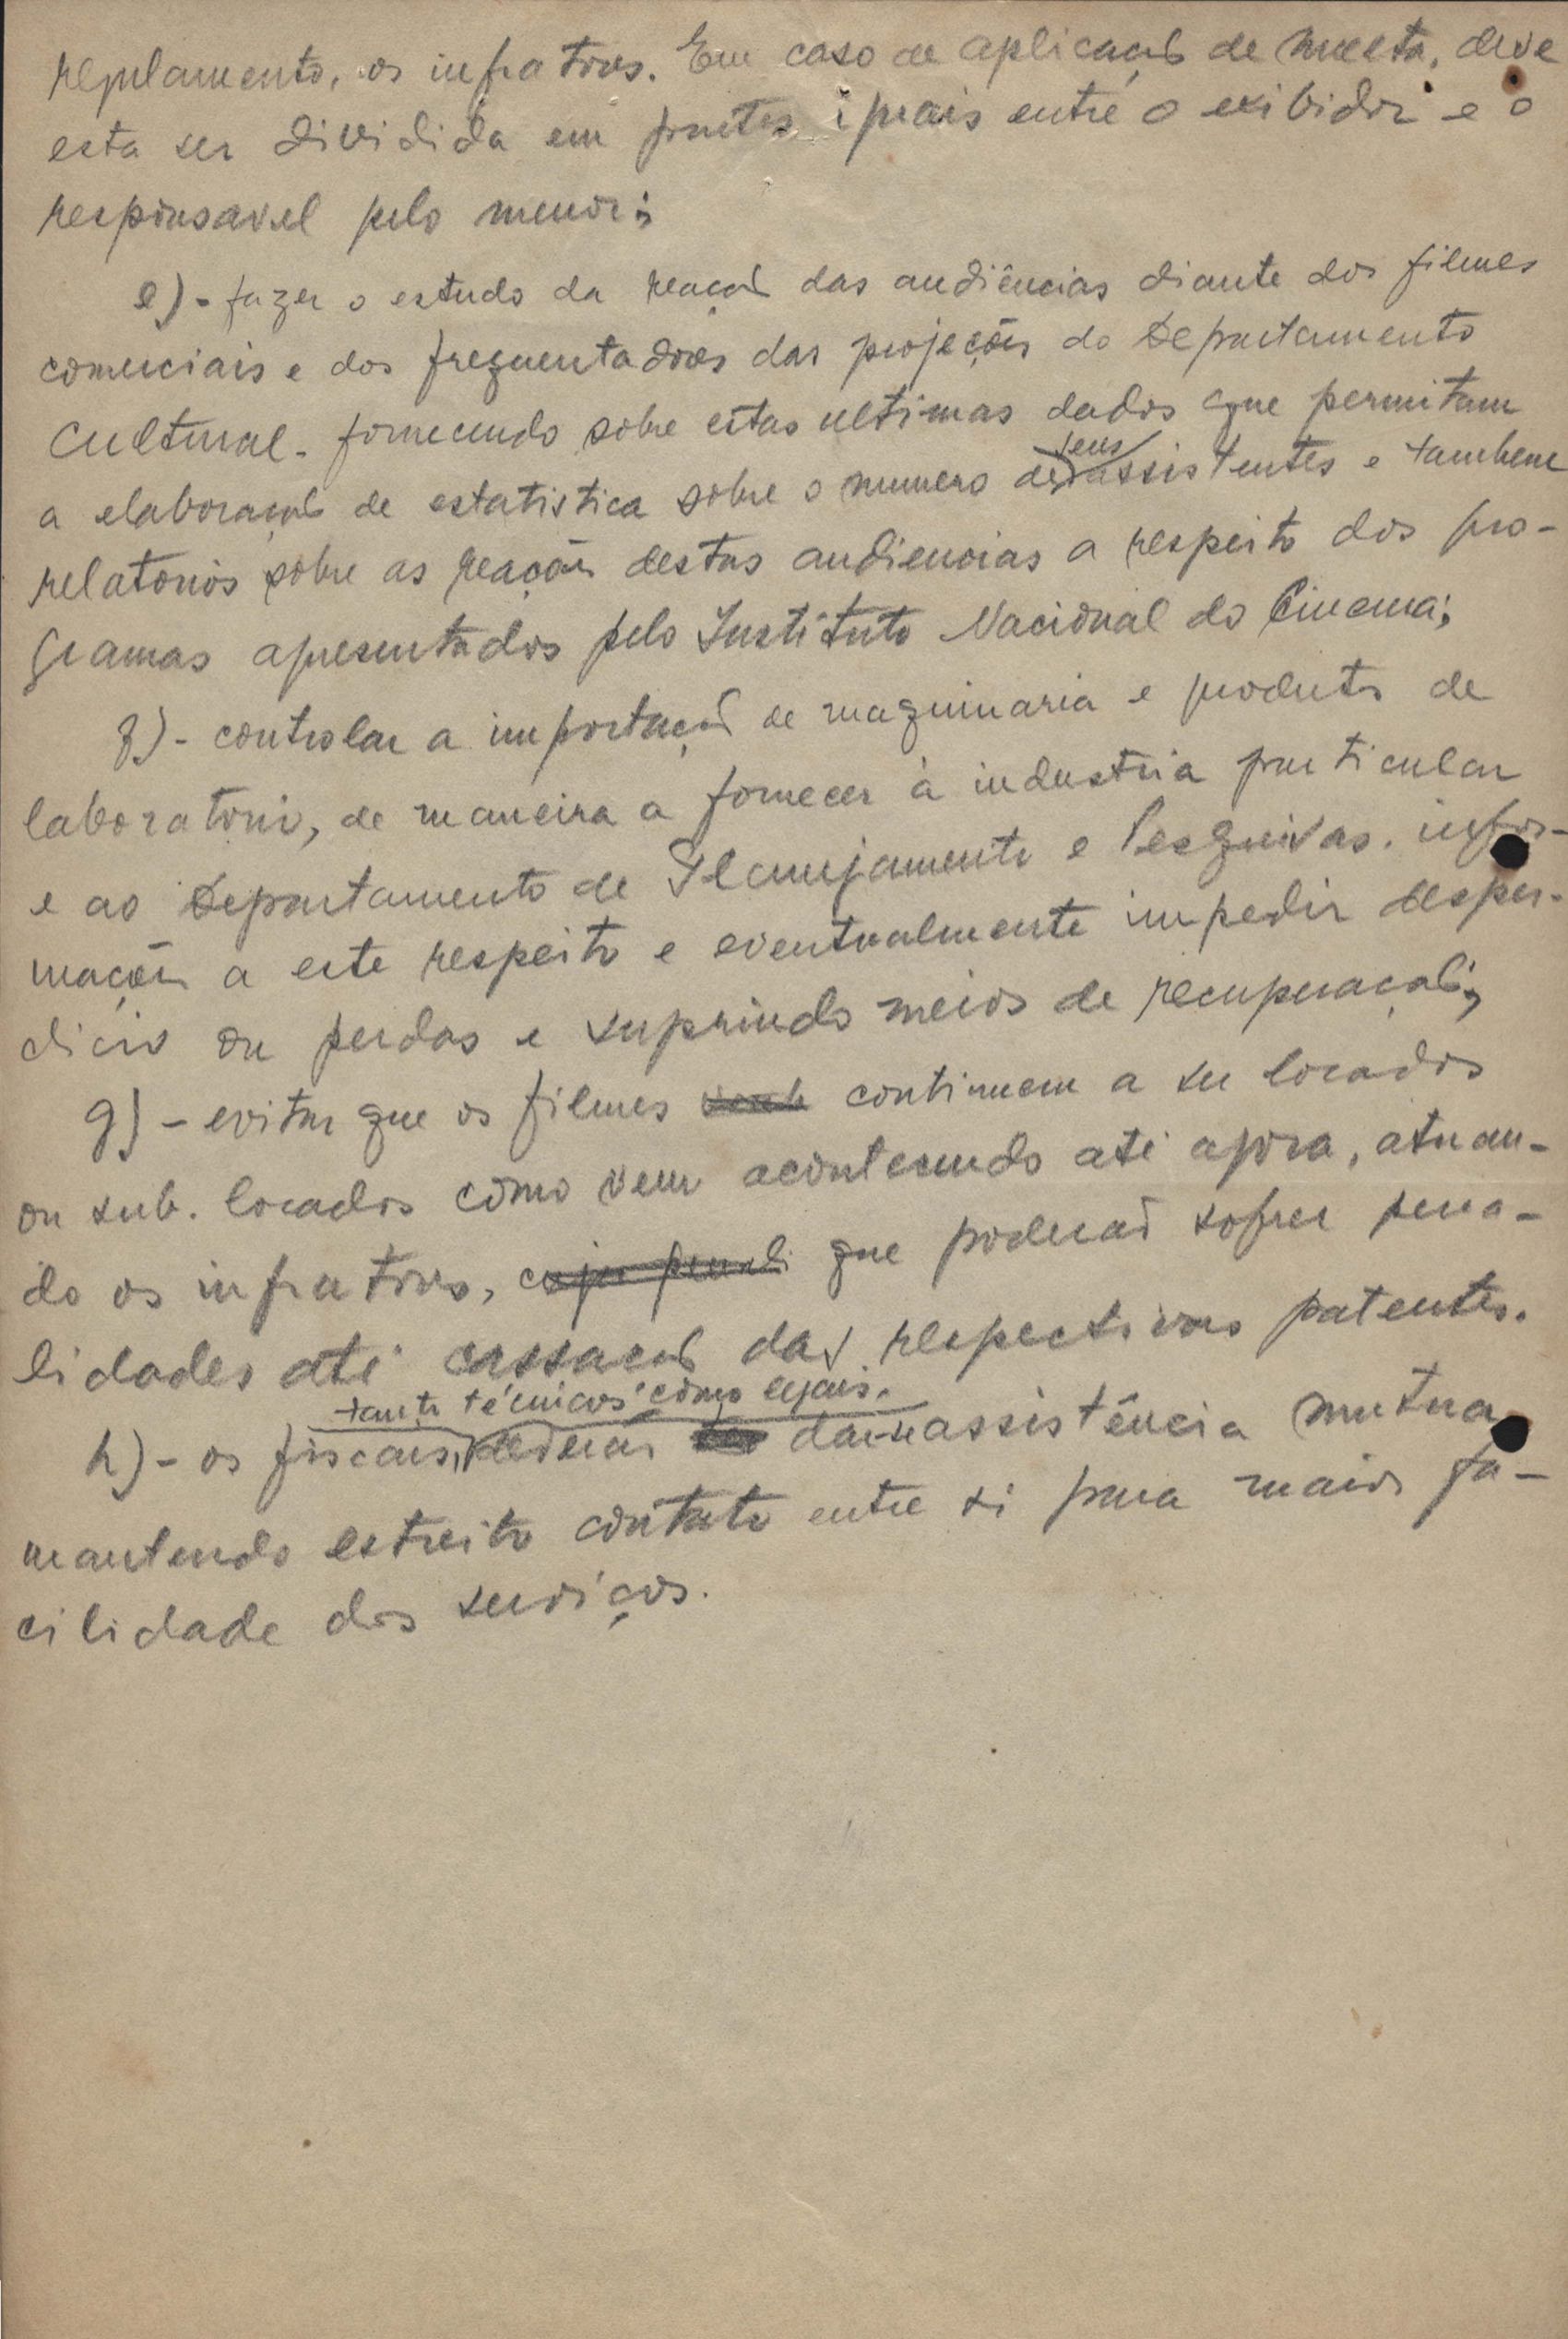 regulamento, os infratores. Em caso de aplicação de multa, deve
esta ser dividida em partes iguais entre o exibidor e o
responsavel pelo menor;
e) - fazer o estudo da reação das audiências diante dos filmes
comerciais e dos frequentadores das projeções do Departamento
Cultural - fornecendo sobre estas ultimas dados que permitam
seus
a elaboração de estatistica sobre o numero de assistentes e tambem
relatorios sobre as reações destas audiencias a respeito dos pro-
gramas apresentados pelo Instituto Nacional do Cinema;
f) - controlar a importação de maquinaria e produtos de
laboratorio, de maneira a fornecer à industria particular
e ao Departamento de Planejamento e Pesquisas, infor-
mações a este respeito e eventualmente impedir desper-
dicio ou perdas e suprindo meios de recuperação;
g) - evitar que os filmes continuem a ser locados
ou sub-locados como vem acontecendo até agora, atuan-
do os infratores, cuja penali que poderão sofrer pena-
lidades até cassação das respectivas patentes.
tanto técnicos como legais.
h) - os fiscais, deverão dar-se assistência mutua
mantendo estreito contato entre si para maior fa-
cilidade dos serviços.